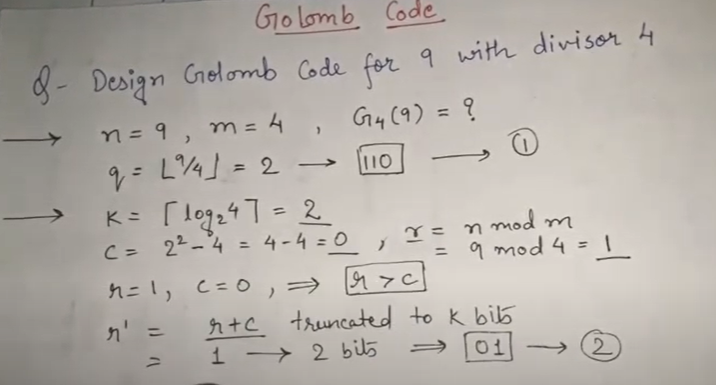 Golomb Code
Q- Design Golomb Code for 9 with divisor 4
→ n = 9 , m = 4 , G4(9) = ?
q = ⌊9/4⌋ = 2 → 110 → ①
→ K = ⌈log₂4⌉ = 2
C = 2² - 4 = 4 - 4 = 0 , r = n mod m
= 9 mod 4 = 1
r = 1, C = 0 , ⇒ r > C
r' = r + C truncated to K bits
= 1 → 2 bits ⇒ 01 → ②